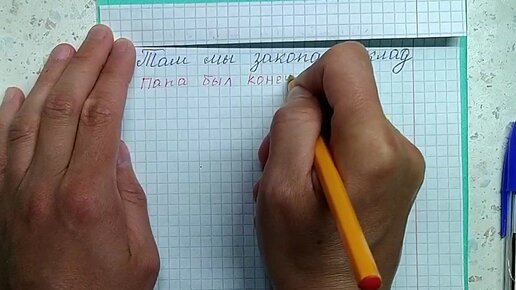 Там мы закопа клад
Папа был конеч